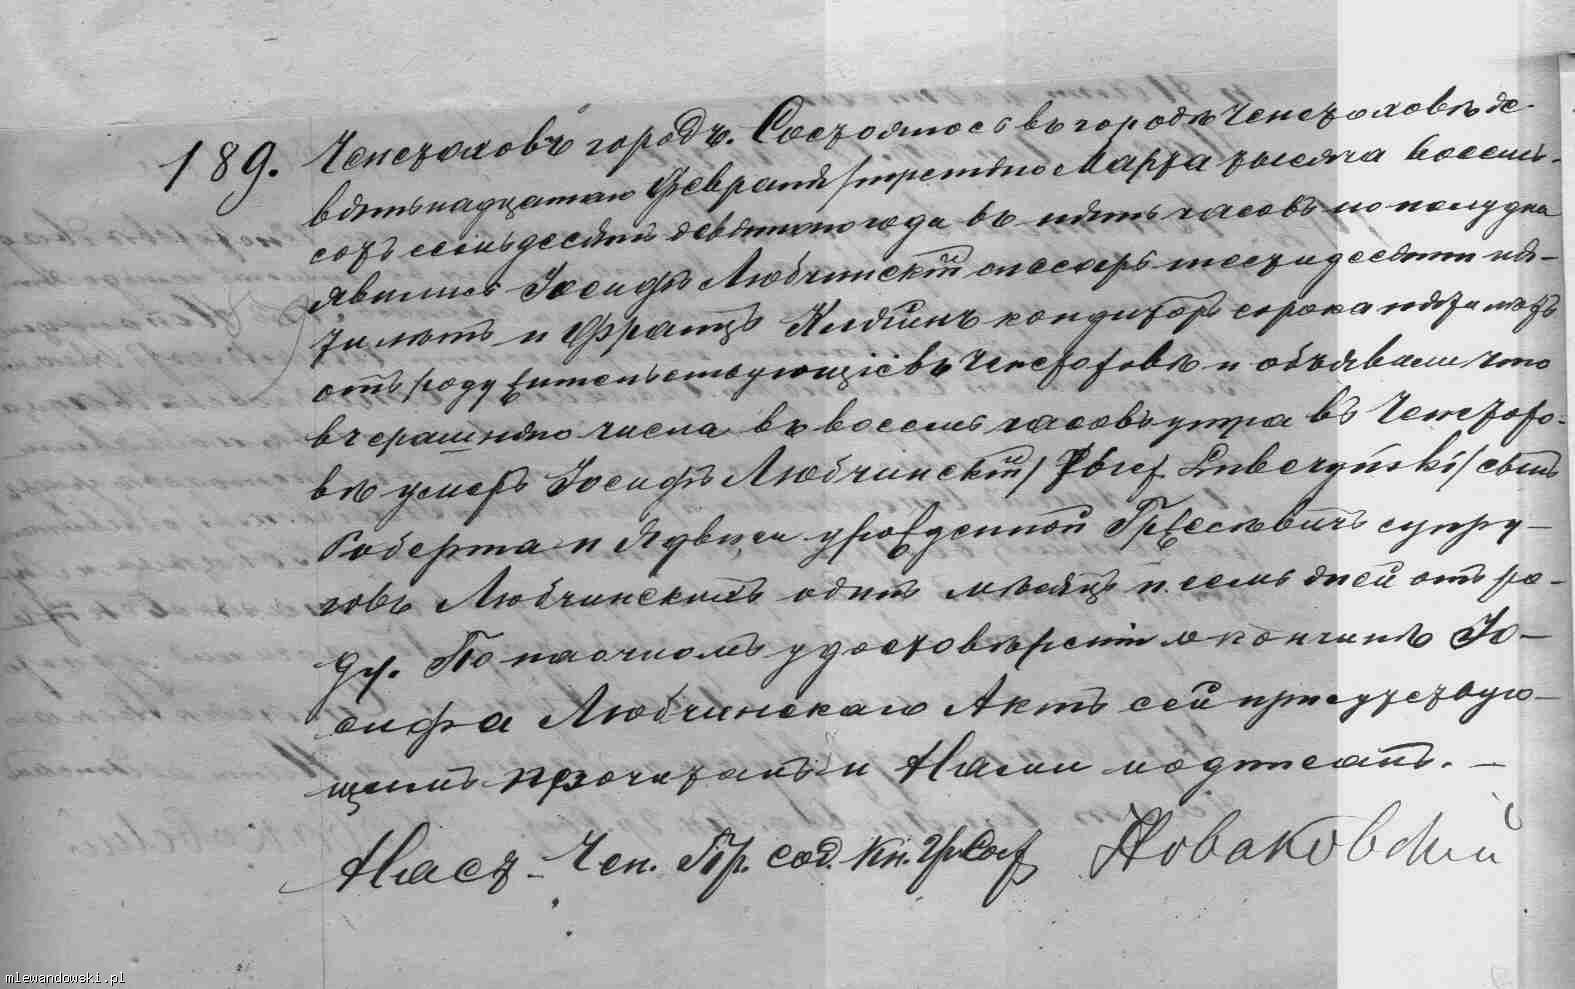 189. Ченстоховъ городъ. Состоялось въ городѣ Ченстоховѣ де-
вятьнадцатаго Февраля /третьяго Марта тысяча восемь-
сотъ семьдесятъ девятаго года въ пять часовъ по полудни
явились Іосифъ Любчинскій слесарь шестидесяти пя-
ти лѣтъ и Францъ кондиторъ сорока пяти лѣтъ
отъ роду жительствующіе въ Ченстоховѣ и объявили что
вчерашняго числа въ восемь часовъ утра въ Ченстохо-
вѣ умеръ Іосифъ Любчинскій /Józef Lubczyński/ сынъ
Роберта и Ядвиги урожденной супру-
говъ Любчинскихъ одинъ мѣсяцъ и семь дней отъ ро-
ду. По наочномъ удостовѣреніи о кончинѣ Іо-
сифа Любчинскаго Актъ сей присутствую-
щимъ прочитанъ и Нами подписанъ. —
Чен. Гр. сод. кн. Новаковскій
mlewandowski.pl